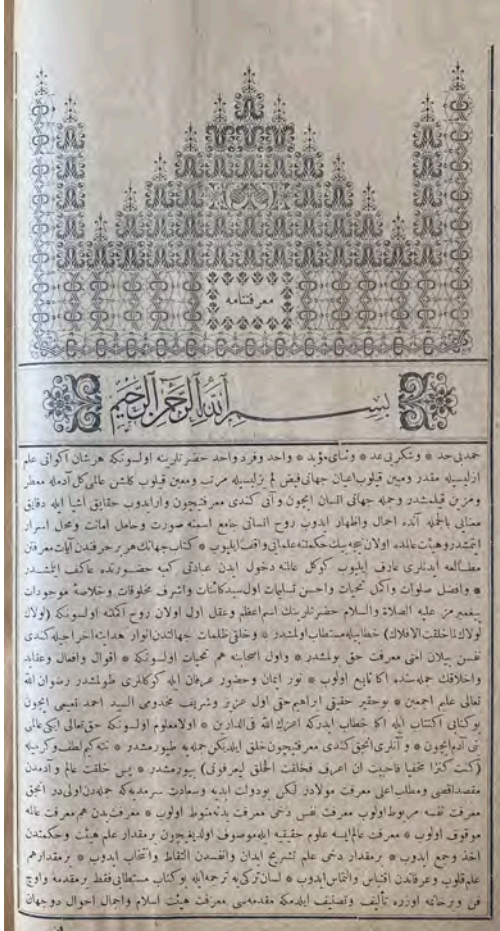 معرفتنامه
بسم الله الرحمن الرحيم
حمد بی حد * وشکر بی عد * وثنای مؤبد * واحد وفرد واحد حضرتلرینه اولسونکه هرشان اکوانی علم
ازلیسیله مقدر ومبین قیلوب اعیان جهانی فیض لم یزلیسیله مرتب ومعین قیلوب کلشن عالمی کل آدمله معطر
ومزین قیلمشدر وجمله جهانی انسان ایچون وآنی کندی معرفتیچون وارایدوب حقایق اشیا ایله دقایق
معنایی بالجمله آنده اجمال واظهار ایدوب روح انسانی جامع اسمنه صورت وحامل امانت ومحل اسرار
ایتمشدر وهیئت عالمده اولان نجه بیك حکمتنه علمایی واقف ایلیوب * کتاب جهانك هر بر حرفندن آیات معرفتن
مطالعه ایدنلری عارف ایلیوب کوکل خانه دخول ایدن عبادنی کعبه حضورنده عاکف ایتمشدر
* وافضل صلوات واکمل تحیات واحسن تسلیمات اول سید کائنات واشرف مخلوقات وخلاصۀ موجودات
پیغمبرمز علیه الصلاة والسلام حضرتلرینك اسم اعظم وعقل اول اولان روح اکنه اولسونکه (لولاك
لولاك لما خلقت الافلاك) خطابیله مستطاب اولمشدر * وخلق ظلمات جهاندن انوار هدایته اخراجیله کندی
نفسن بیلان امتی معرفت حق بولمشدر * واول اصحابنه هم تحیات اولسونکه * اقوال وافعال وعقاید
واخلاقك جمله سنده اکا تابع اولوب * نور ایمان وحضور عرفان ایله کوکللری طولمشدر رضوان الله
تعالی علیهم اجمعین * بوحقیر حقیقی ابراهیم حقی اول عزیز وشریف مخدومی السید احمد نعیمی ایچون
بوکتابی اکتتاب ایله اکا خطاب ایدرکه اعزك الله فی الدارین * اولا معلوم اولسونکه حق تعالی ایکی عالمی
بنی آدم ایچون * وآنلری انجق کندی معرفتیچون خلق ایلدیکن جمله یه طیورمشدر * نته کیم لطف وکرمیله
(کنت کنزا مخفیا فاحببت ان اعرف فخلقت الخلق لیعرفونی) بیورمشدر * پس خلقت عالم وآدمدن
مقصد اقصی ومطلب اعلی معرفت مولادر لکن بودولت ابدیه وسعادت سرمدیه که جمله دن اولی در انجق
معرفت نفسه مربوط اولوب معرفت نفس دخی معرفت بدنه منوط اولوب * معرفت بدن هم معرفت عالمه
موقوف اولوب * معرفت عالم ایسه علوم حقیقیه ایله موصوف اولدیغیچون برمقدار علم هیئت وحکمتدن
اخذ وجمع ایدوب * برمقدار دخی علم تشریح ابدان وانفسدن التقاط وانتخاب ایدوب * برمقدار هم
علم قلوب وعرفاندن اقتباس والتماس ایدوب * لسان ترکی یه ترجمه ایله بوکتاب مستطابی فقط برمقدمه واوچ
فن وبرخاتمه اوزره تألیف وتصنیف ایلدمکه مقدمه سی معرفت هیئت اسلام واجمال احوال دوجهان